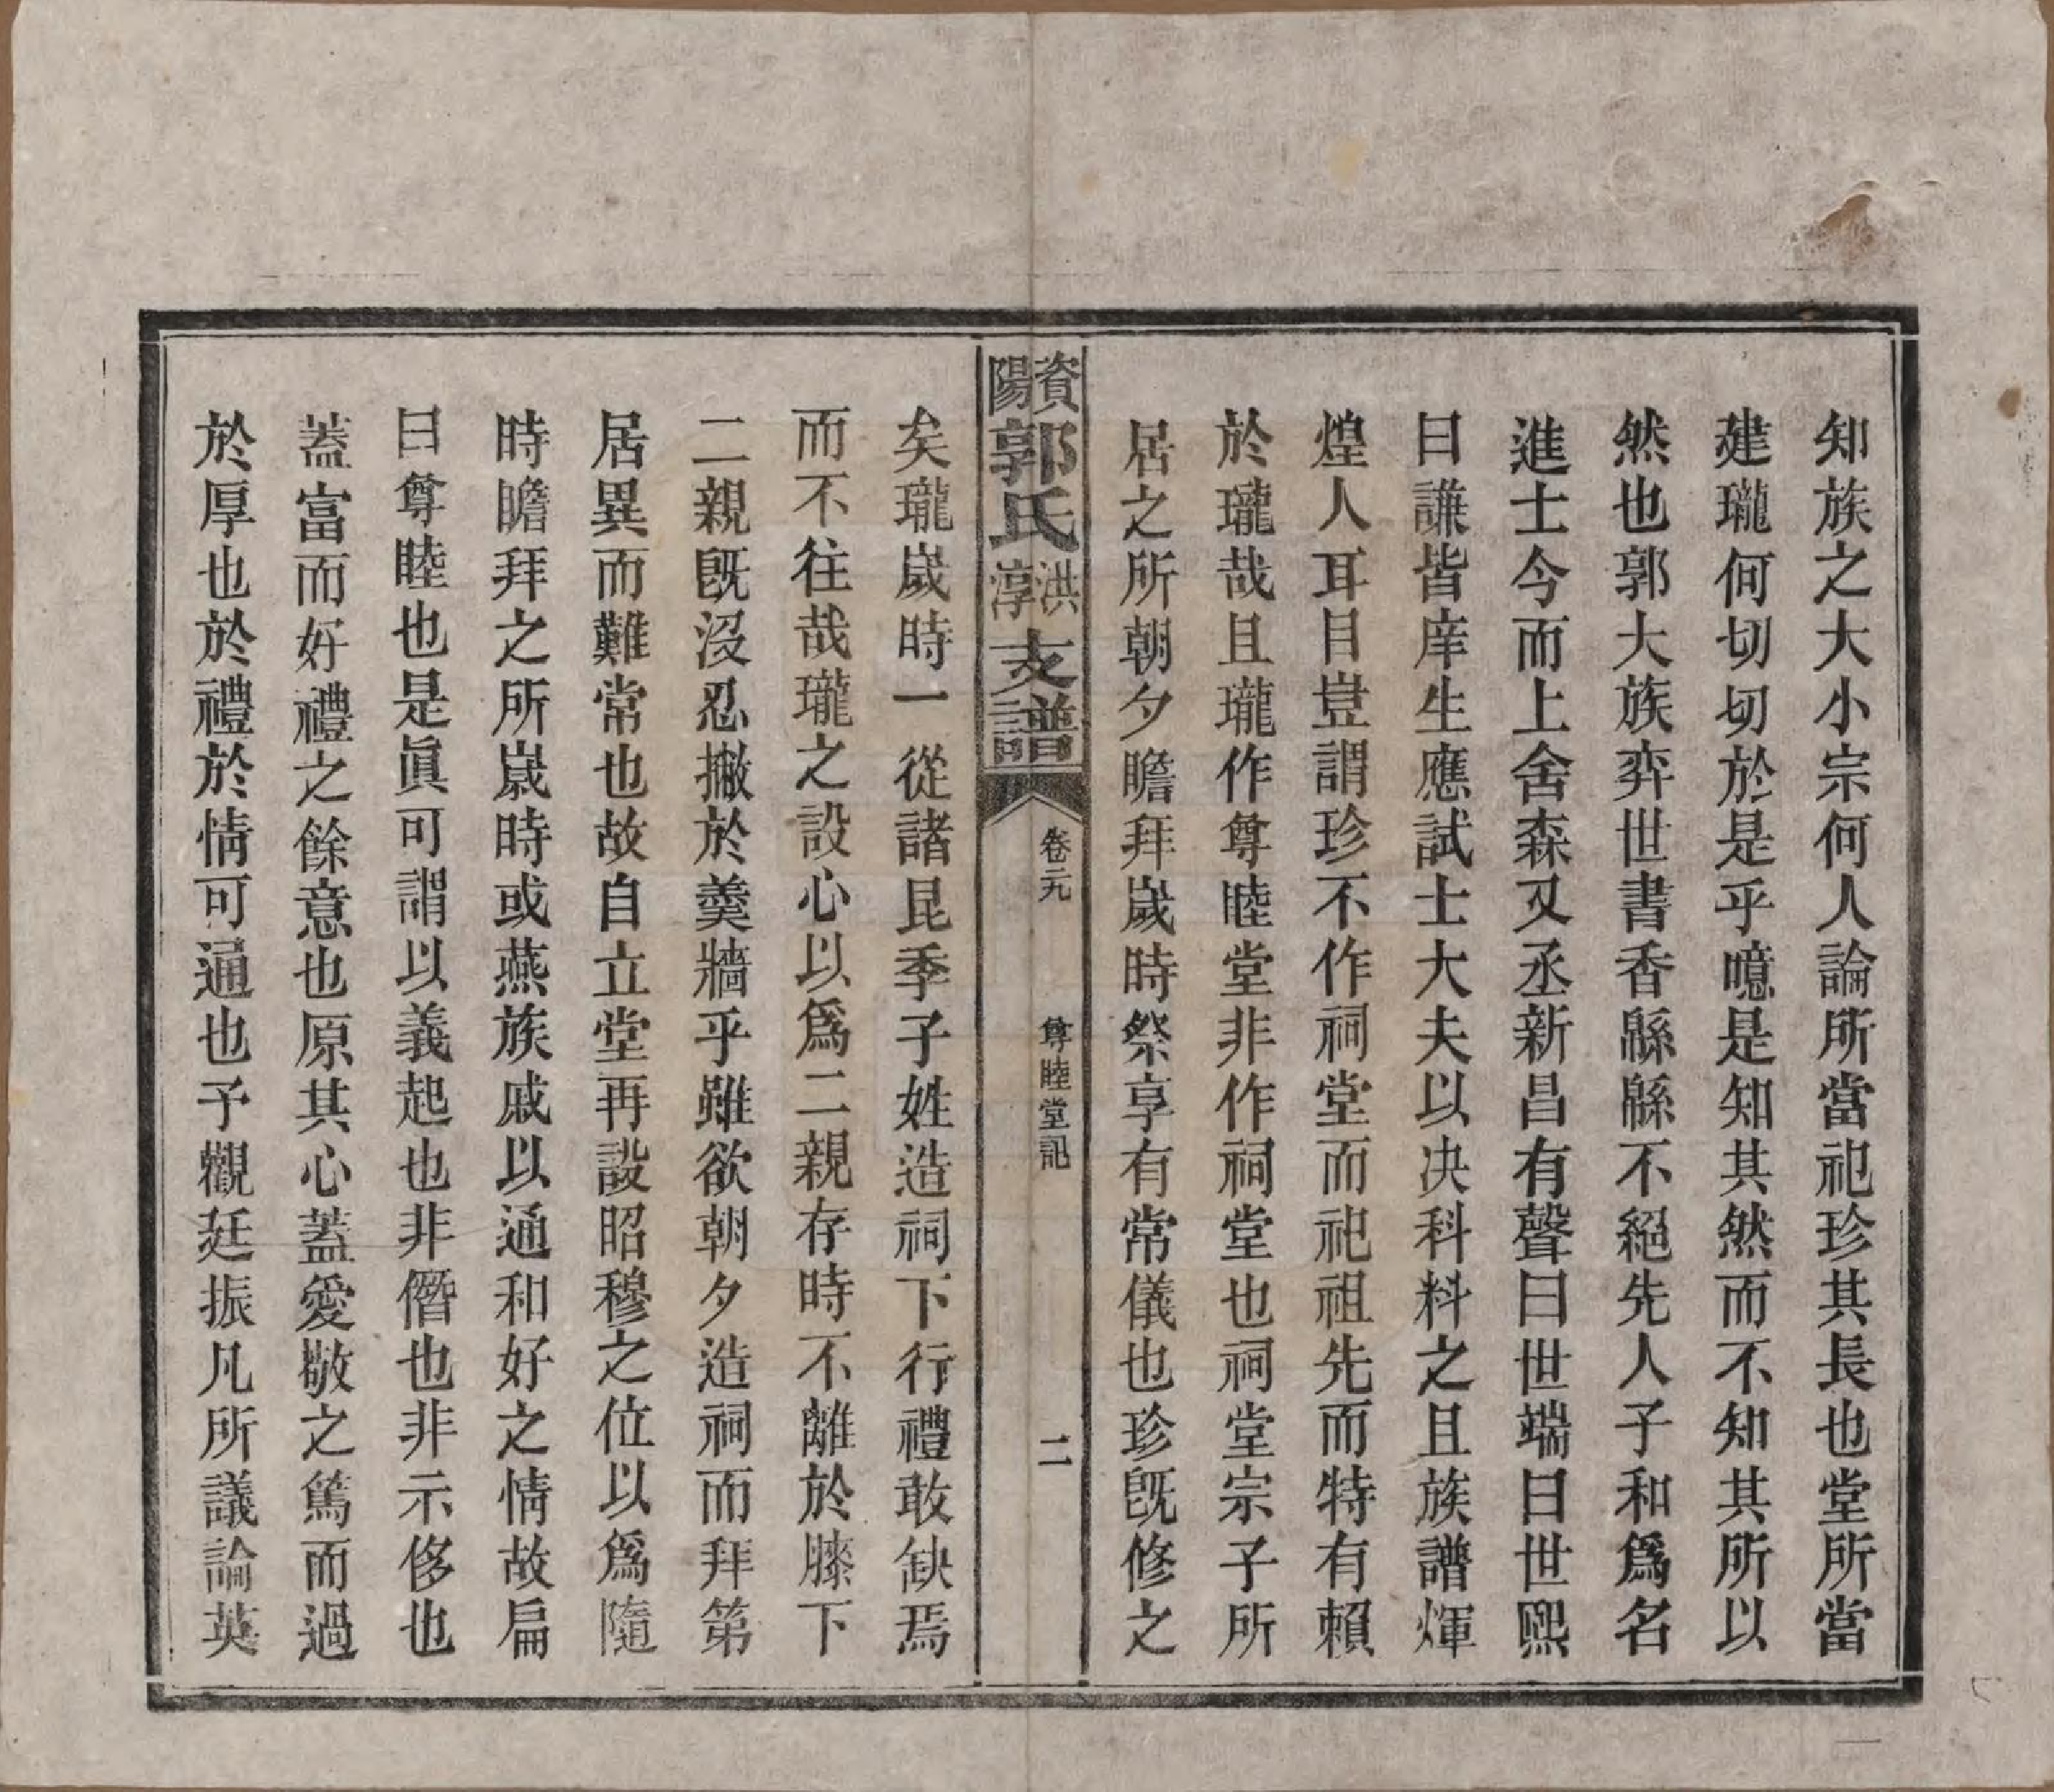 知族之大小宗何人論所當祀珍其長也堂所當
建瓏何切切於是乎噫是知其然而不知其所以
然也郭大族弈世書香緜緜不絕先人子和爲名
進士今而上舍森又丞新昌有聲曰世端曰世熙
曰謙皆庠生應試士大夫以决科料之且族譜煇
煌人耳目豈謂珍不作祠堂而祀祖先而特有賴
於瓏哉且瓏作尊睦堂非作祠堂也祠堂宗子所
居之所朝夕瞻拜歲時祭享有常儀也珍旣修之
資陽郭氏洪淳支譜
卷元
尊睦堂記
二
矣瓏歲時一從諸昆季子姓造祠下行禮敢缺焉
而不往哉瓏之設心以爲二親存時不離於膝下
二親旣沒忍撇於羹牆乎雖欲朝夕造祠而拜第
居異而難常也故自立堂再設昭穆之位以爲隨
時瞻拜之所歲時或燕族戚以通和好之情故扁
曰尊睦也是眞可謂以義起也非僭也非示侈也
蓋富而好禮之餘意也原其心蓋愛敬之篤而過
於厚也於禮於情可通也予觀廷振凡所議論英